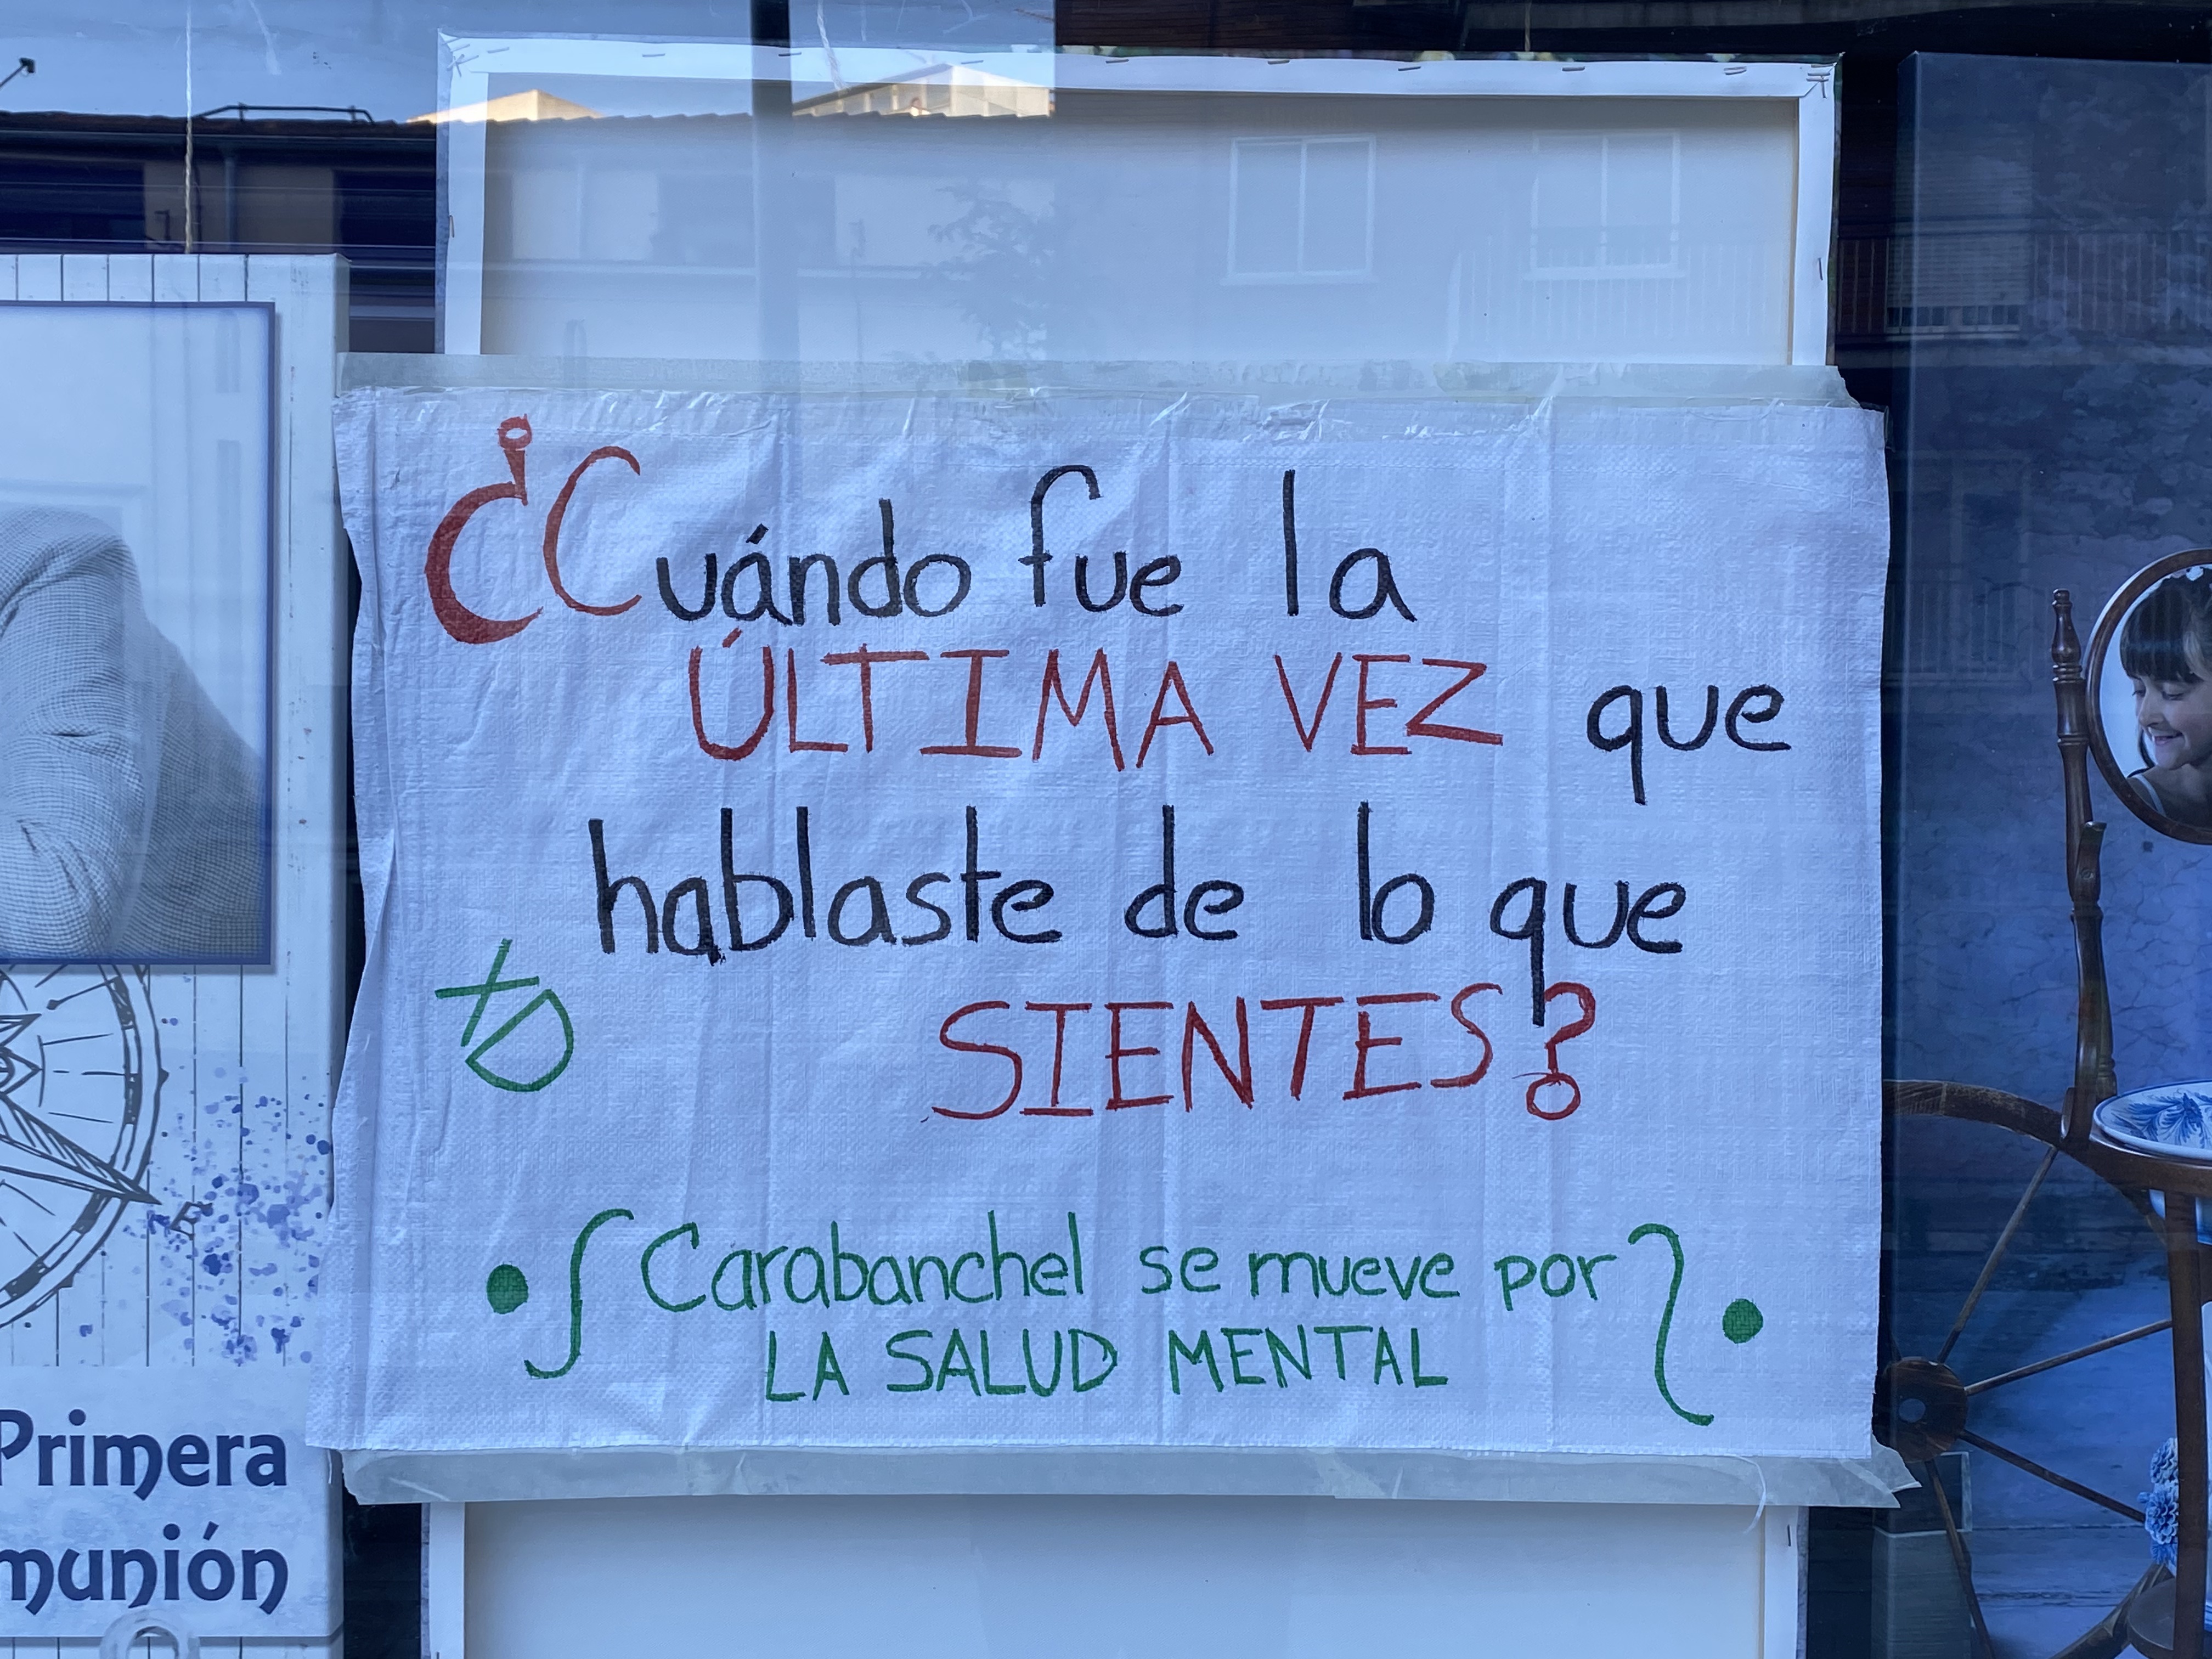 ¿Cuándo fue la
ÚLTIMA VEZ que
hablaste de lo que
SIENTES?
Carabanchel se mueve por
LA SALUD MENTAL
Primera
munión